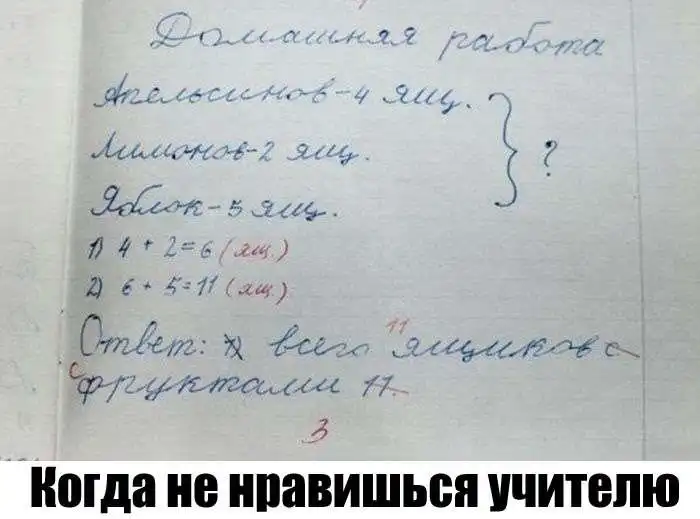 Домашняя работа
Апельсинов-4 ящ.
Лимонов-2 ящ.
?
Яблок-5 ящ.
1) 4 + 2=6 (ящ.)
2) 6 + 5=11 (ящ.)
11
Ответ: всего ящиков с
с фруктами 11.
3
Когда не нравишься учителю